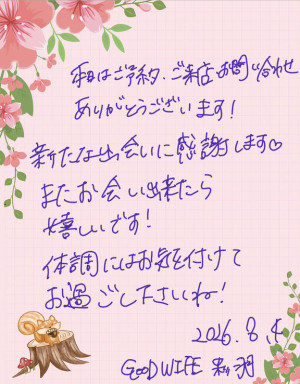 本日はご予約、ご来店、お問い合わせ
ありがとうございます!
新たな出会いに感謝します♡
またお会い出来たら
嬉しいです!
体調にはお気を付けて
お過ごし下さいね!
2026.8.4
GOOD WIFE